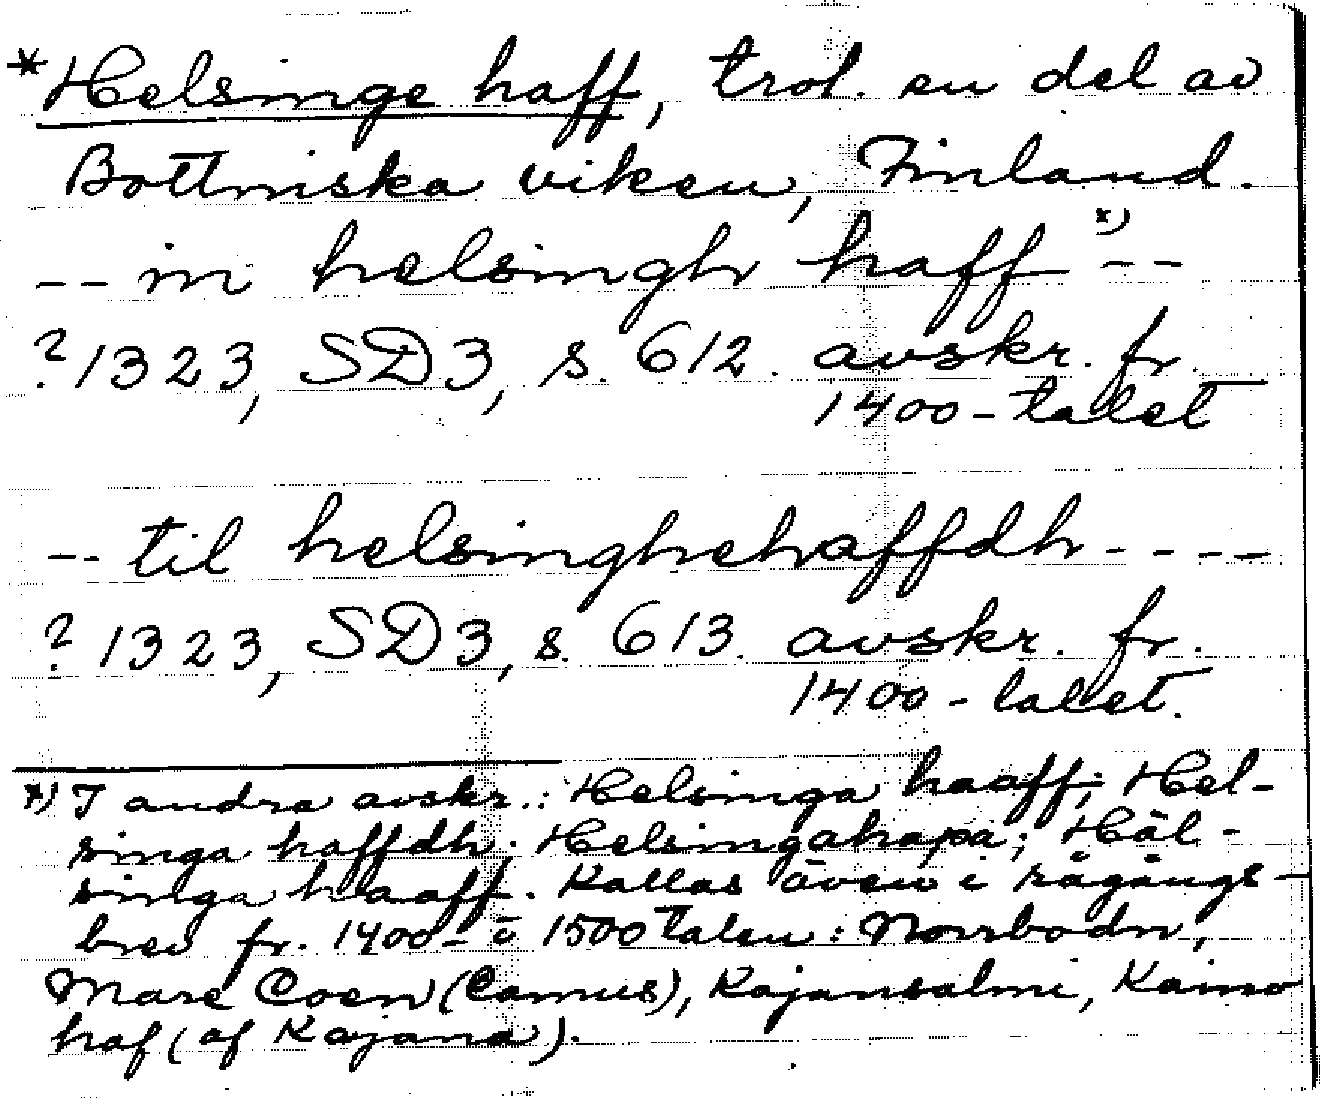 *Helsinge haff, trol. en del av
Bottniska viken, Finland.
-- in helsingh haff *) --
? 1323, SD3, s. 612. avskr. fr.
1400-talet
-- til helsinghehaffdh - - - -
? 1323, SD3, s. 613. avskr. fr.
1400-talet.
*) I andra avskr.: Helsinga haaff; Hel-
singa haffdh; Helsingahapa; Häl-
singa haaff. Kallas även i rågångs-
brev fr. 1400- o 1500talen: Norrbodn,
Mare Coen (Camus), Kajansalmi, Kaino
haf (af Kajana).